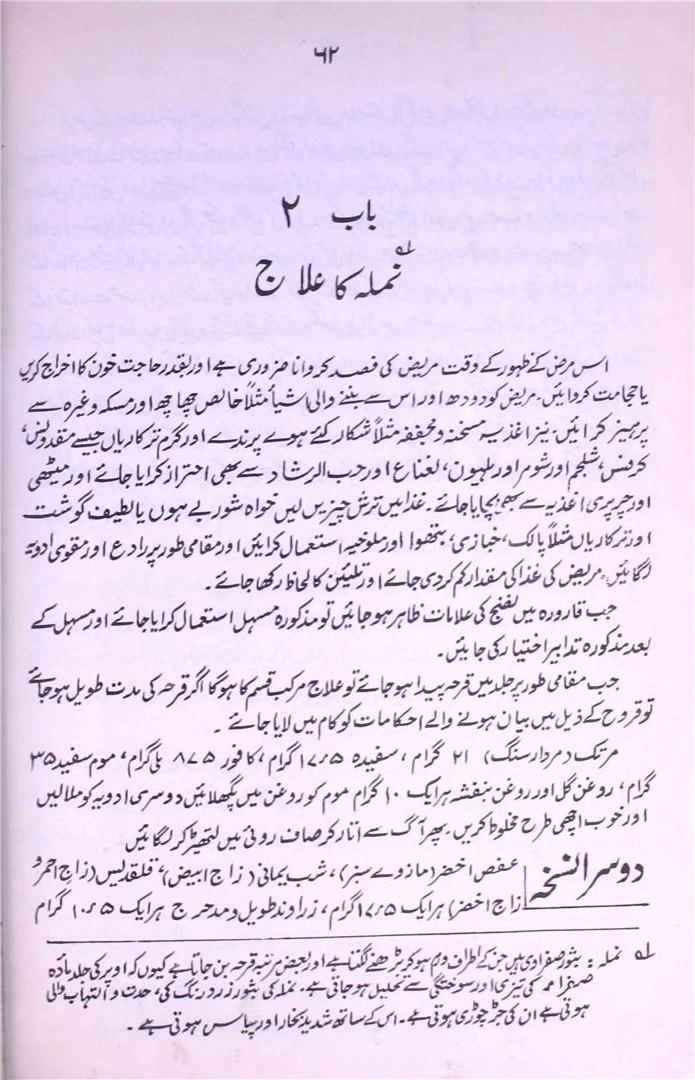 ۶۲
باب ۲
نملہ کا علاج لہ
اس مرض کے ظہور کے وقت مریض کی فصد کروانا ضروری ہے اور بقدر حاجت خون کا اخراج کریں
یا حجامت کروائیں۔ مریض کو دودھ اور اس سے بننے والی اشیأ مثلاً خالص چھاچھ اور مسکہ وغیرہ سے
پرہیز کرائیں۔ نیز اغذیہ مسخنہ و مجففہ مثلاً شکار کئے ہوے پرندے اور گرم ترکاریاں جیسے مقدونس،
کرفس، شلجم اور شوم اور ہلیون، نعناع اور حب الرشاد سے بھی احتراز کرایا جائے اور میٹھی
اور چرپری اغذیہ سے بھی بچایا جائے۔ غذا میں ترش چیزیں لیں خواہ شوربے ہوں یا لطیف گوشت
اور ترکاریاں مثلاً پالک، خبازی، بتھوا اور ملوخیہ استعمال کرائیں اور مقامی طور پر رادع اور مقوی ادویہ
لگائیں۔ مریض کی غذا کی مقدار کم کردی جائے اور تلیئن کا لحاظ رکھا جائے۔
جب قارورہ میں نضج کی علامات ظاہر ہوجائیں تو مذکورہ مسہل استعمال کرایا جائے اور مسہل کے
بعد مذکورہ تدابیر اختیار کی جایئں۔
جب مقامی طور پر جلد میں قرحہ پیدا ہوجائے تو علاج مرکب قسم کا ہوگا اگر قرحہ کی مدت طویل ہوجائے
تو قروح کے ذیل میں بیان ہونے والے احکامات کو کام میں لایا جائے۔
مرتک (مردار سنگ) ۲۱ گرام، سفیدہ ۱۷٫۵ گرام، کافور ۸۷۵ ملی گرام، موم سفید ۳۵
گرام، روغن گل اور روغن بنفشہ ہر ایک ۱۰ گرام موم کو روغن میں پگھلائیں دوسری ادویہ کو ملالیں
اور خوب اچھی طرح مخلوط کریں۔ پھر آگ سے اتار کر صاف روئی میں لتھیڑ کر لگائیں
دوسرا نسخہ عفص اخضر (مازوے سبز)، شب یمانی (زاج ابیض)، قلقدیس (زاج احمر و
زاج اخضر) ہر ایک ۱۷٫۵ گرام، زراوند طویل و مدحرج ہر ایک ۱۰٫۵ گرام
لہ نملہ : بثور صفراوی ہیں جن کے اطراف ورم ہو کر بڑھنے لگتا ہے اور بعض مرتبہ قرحہ بن جاتا ہے کیوں کہ اوپر کی جلد مادّہ
صفرا کی تیزی اور سوختگی سے تحلیل ہوجاتی ہے۔ نملہ کی بثور زرد رنگ کی، حدت و التہاب والی
ہوتی ہے ان کی جڑ چوڑی ہوتی ہے۔ اس کے ساتھ شدید بخار اور پیاس ہوتی ہے۔